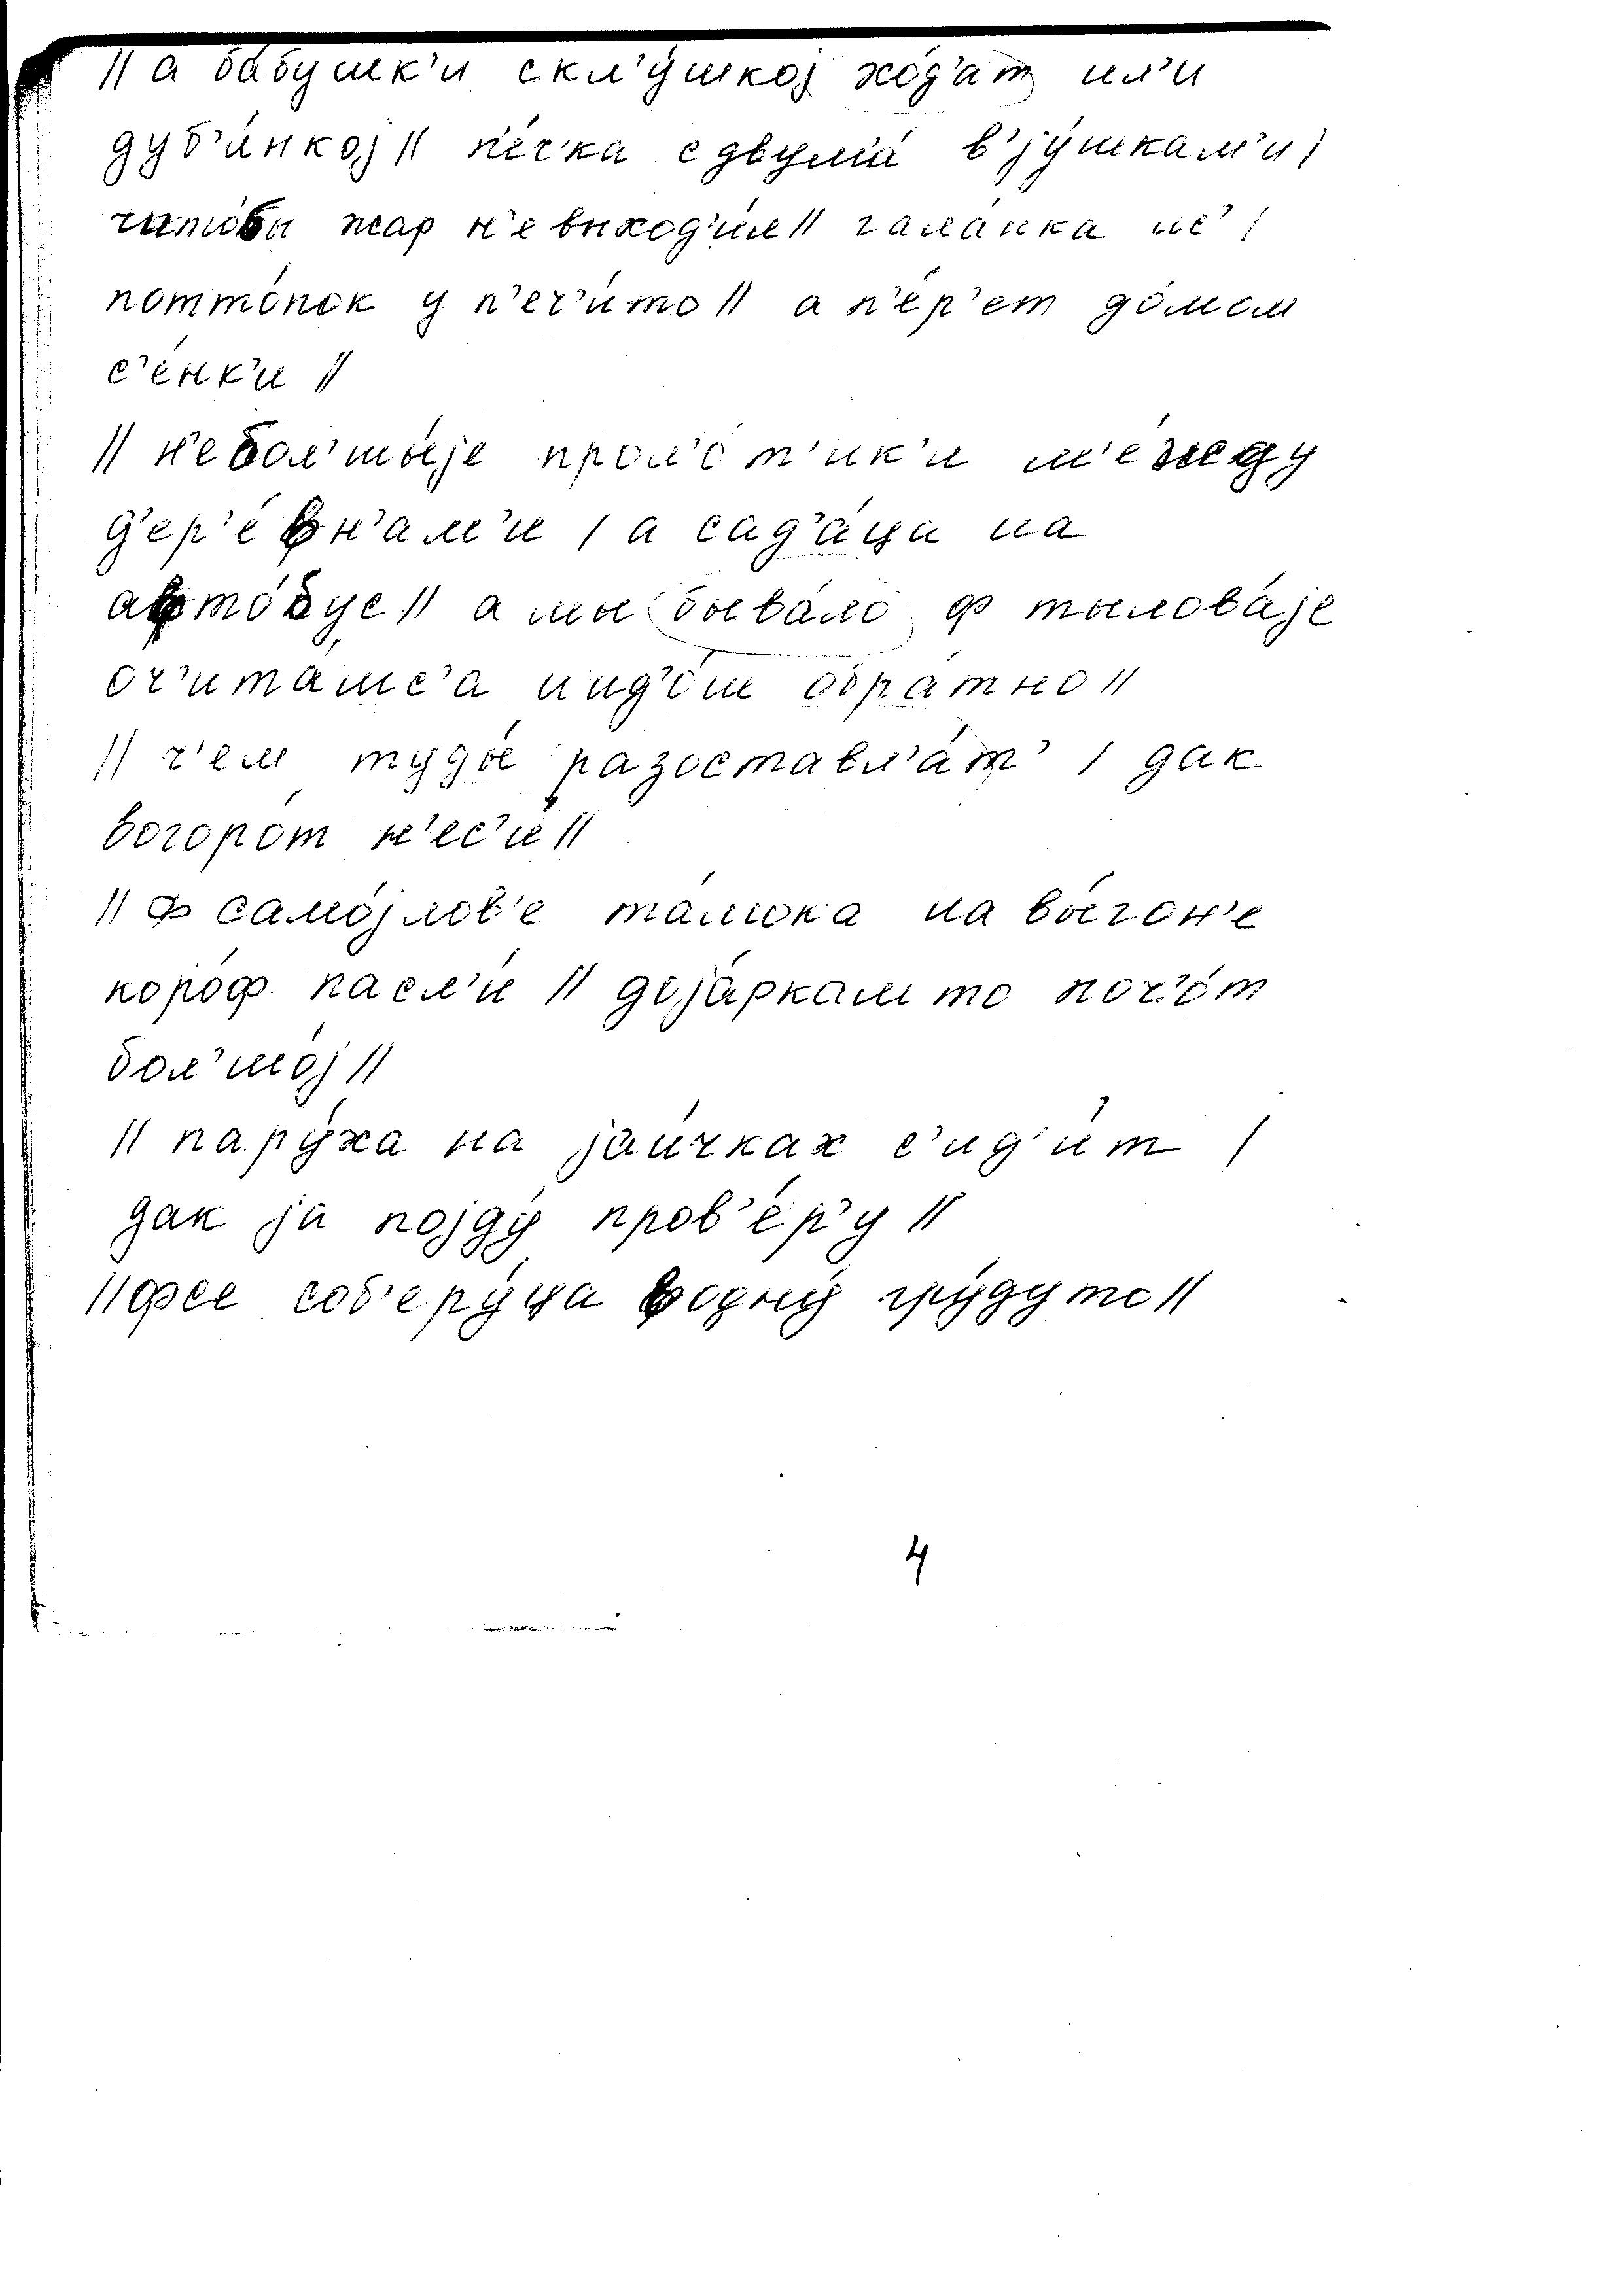 // а ба́бушк'и скл'у́шкој хо́д'ат ил'и
дуб'и́нкој // п'е́ч'ка сдвум'а́ в'јýшкам'и /
чито́бы жар н'евыход'и́л // гала́нка не' /
потто́пок у п'еч'и́то // а п'е́р'ет до́мом
с'е́нк'и //
// н'ебол'шы́је прол'о́т'ик'и м'е́жду
д'ер'е́вн'ам'и / а сад'а́ца на
афто́бус // а мы быва́ло ф тылова́је
оч'ита́шс'а ид'о́ш обра́тно //
// ч'ем туды́ разоставл'а́т' / дак
вогоро́т н'ес'и́ //
// ф само́јлов'е та́мока на вы́гон'е
коро́ф пасл'и́ // доја́ркам то поч'о́т
бол'шо́ј //
// пару́ха на јаи́чках с'ид'и́т /
дак ја појду́ пров'е́р'у //
// фсе соб'еру́ца водну́ гру́дуто //
4